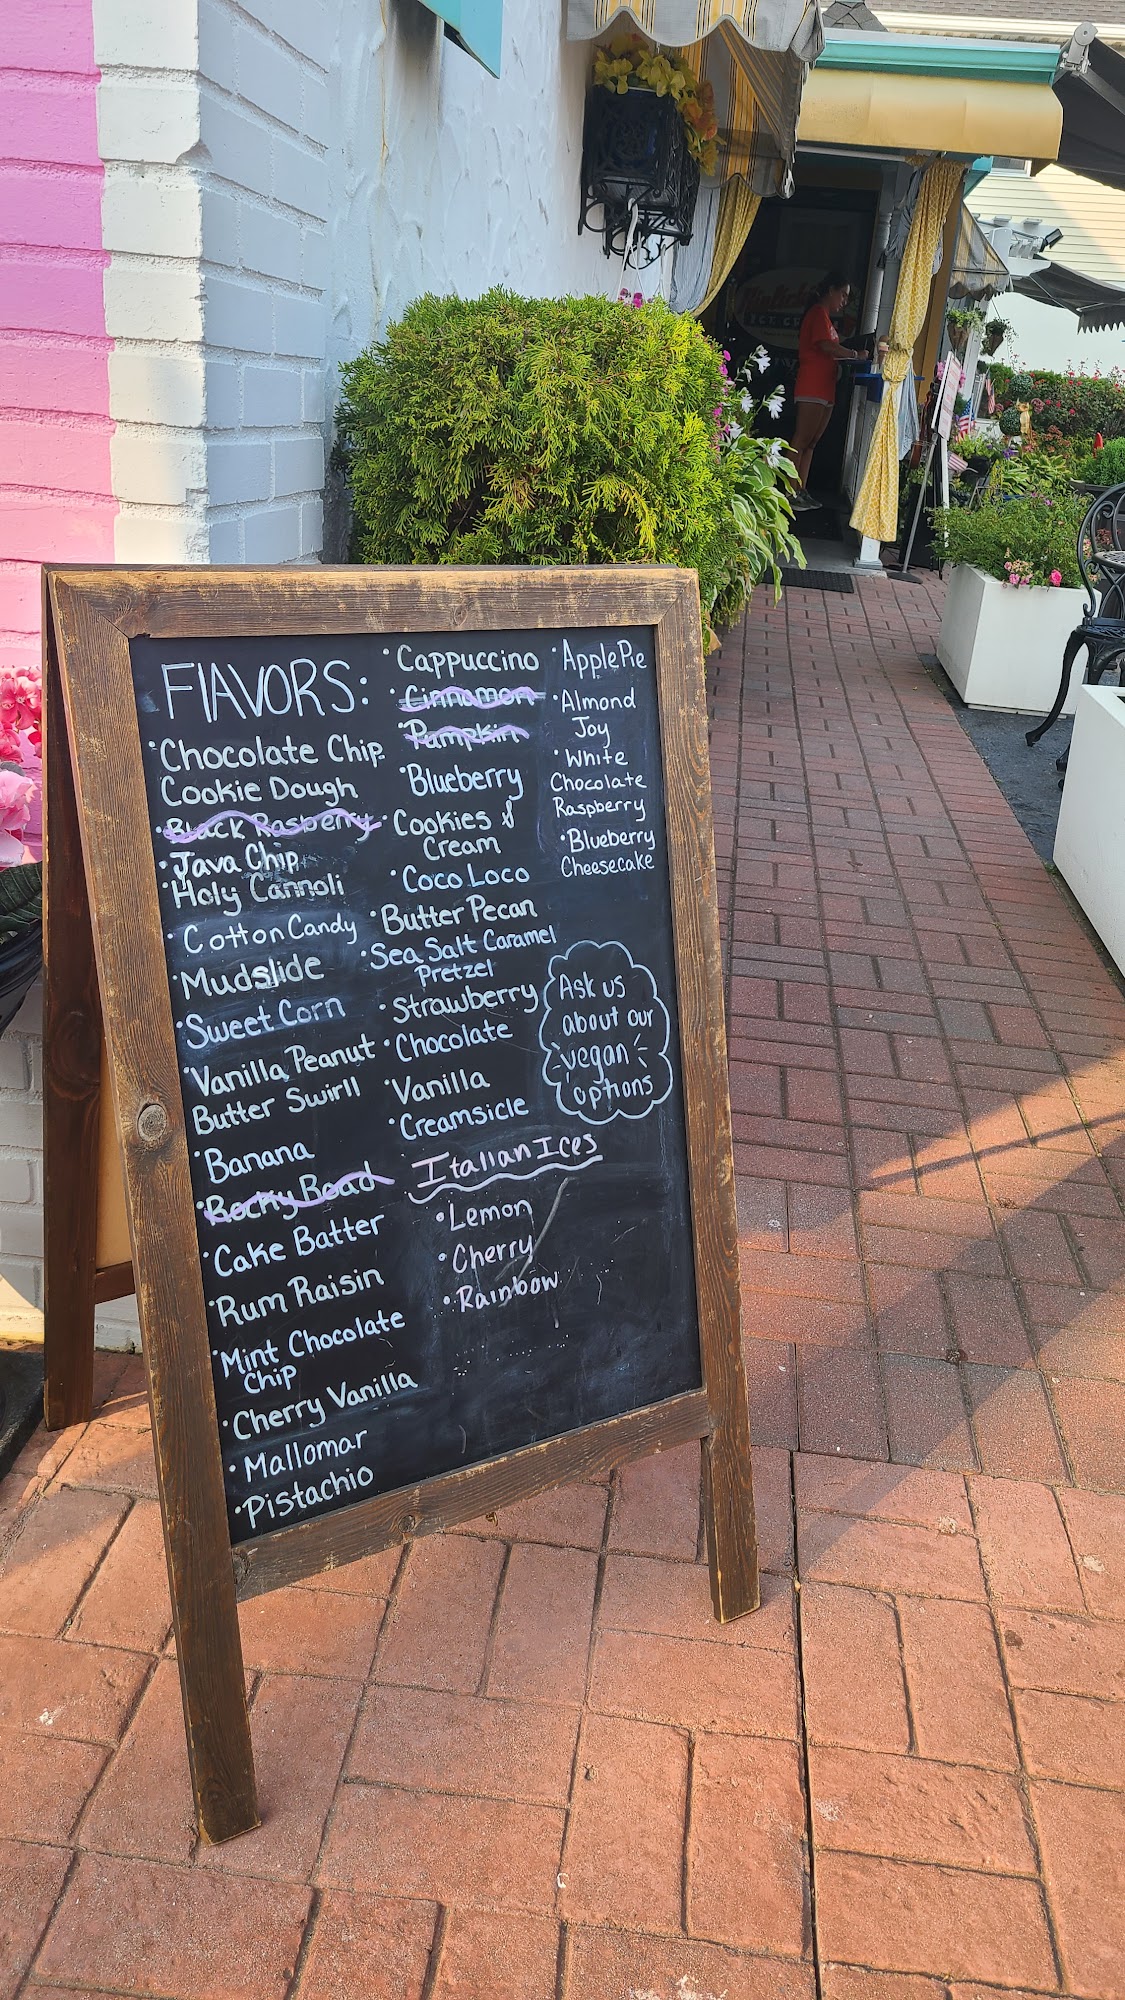 FlAVORS:
• Chocolate Chip
Cookie Dough
• Black Raspberry
• Java Chip
• Holy Cannoli
• Cotton Candy
• Mudslide
• Sweet Corn
• Vanilla Peanut
Butter Swirll
• Banana
• Rocky Road
• Cake Batter
• Rum Raisin
• Mint Chocolate
Chip
• Cherry Vanilla
• Mallomar
• Pistachio
• Cappuccino
• Cinnamon
• Pumpkin
• Blueberry
• Cookies &
Cream
• Coco Loco
• Butter Pecan
• Sea Salt Caramel
Pretzel
• Strawberry
• Chocolate
• Vanilla
• Creamsicle
Italian Ices
• Lemon
• Cherry
• Rainbow
• Apple Pie
• Almond
Joy
• White
Chocolate
Raspberry
• Blueberry
Cheesecake
Ask us
about our
vegan
options